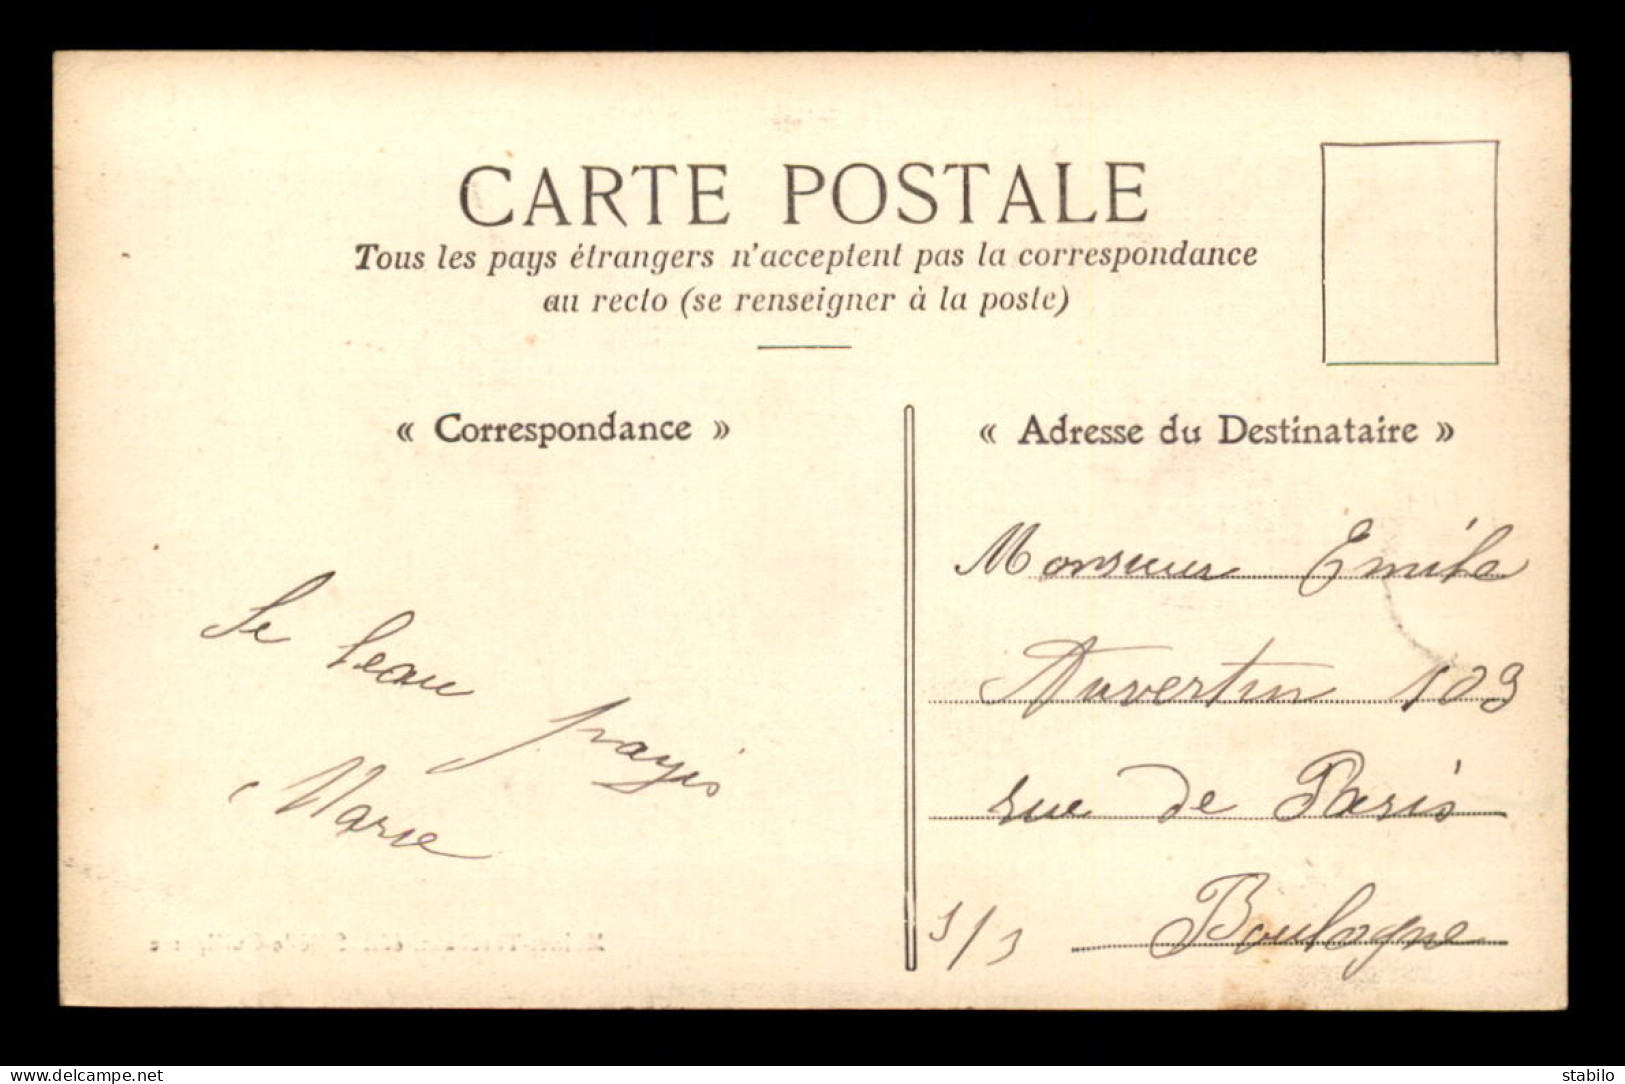 CARTE POSTALE
Tous les pays étrangers n'acceptent pas la correspondance
au recto (se renseigner à la poste)
« Correspondance »
Le beau
pays
Marie
« Adresse du Destinataire »
Monsieur Emile
Auvertin 103
rue de Paris
Boulogne
delcampe.net
stabilo